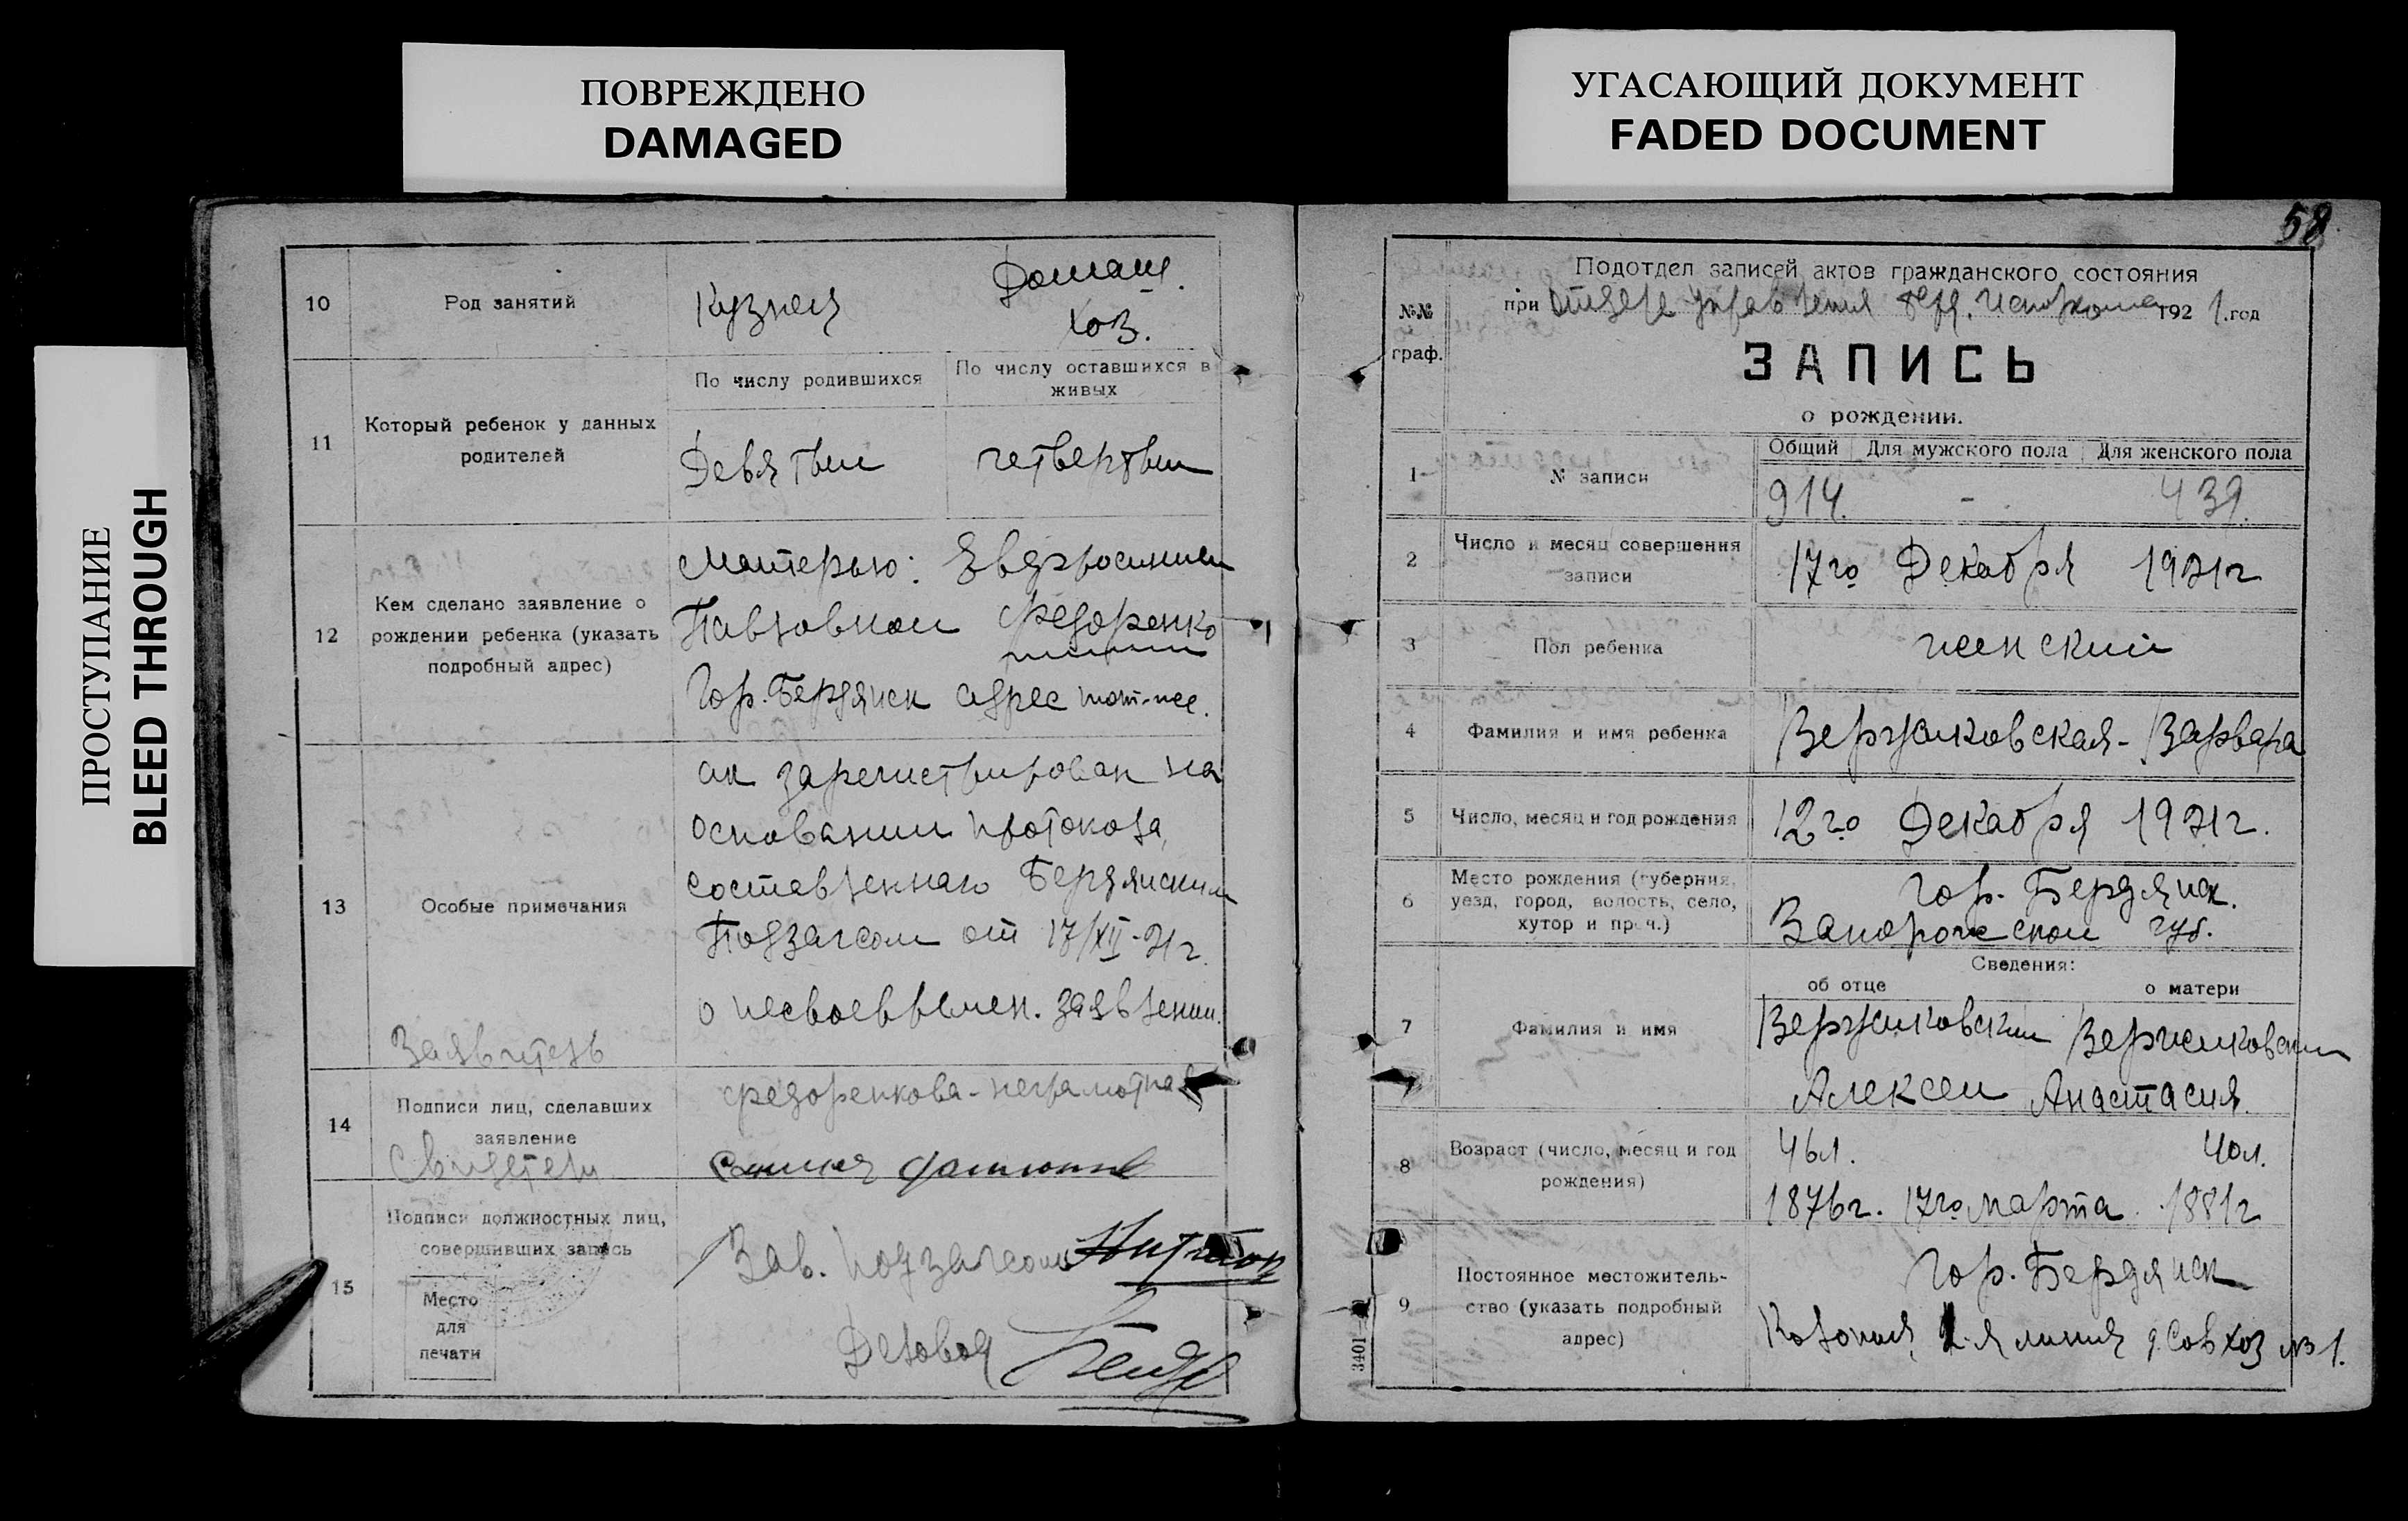 ПОВРЕЖДЕНО
DAMAGED
УГАСАЮЩИЙ ДОКУМЕНТ
FADED DOCUMENT
ПРОСТУПАНИЕ
BLEED THROUGH
10
Род занятий
Кузнец
Домаш.
хоз.
11
Который ребенок у данных
родителей
По числу родившихся
По числу оставшихся в
живых
Девятый
четвертый
12
Кем сделано заявление о
рождении ребенка (указать
подробный адрес)
Матерью: Евдросинией
Павловной Федоренко
Гор. Бердянск адрес тот-же.
13
Особые примечания
ак зарегистрирован на
основании протокола,
составленнаго Бердянским
Подзагсом от 17/XII-21 г.
о несвоеврьмен. заявлении.
Заявитель
14
Подписи лиц, сделавших
заявление
Федоренкова-неграмотная
Свидетели
15
Подписи должностных лиц,
совершивших запись
Место
для
печати
Зав. подзагсом
Деловод
58
№№
граф.
Подотдел записей актов гражданского состояния
при Отделе Управления Берд. Исполкома 192 1. год
ЗАПИСЬ
о рождении.
1
№ записи
Общий
Для мужского пола
Для женского пола
914.
-
439.
2
Число и месяц совершения
записи
17го Декабря 1921 г
3
Пол ребенка
женский
4
Фамилия и имя ребенка
Вержиковская - Варвара
5
Число, месяц и год рождения
12го Декабря 1921 г.
6
Место рождения (губерния,
уезд, город, волость, село,
хутор и проч.)
Гор. Бердянск.
Запорожской губ.
Сведения:
об отце
о матери
7
Фамилия и имя
Вержиковский
Алексей
Анастасия.
8
Возраст (число, месяц и год
рождения)
46 л.
40 л.
1876 г. 17го марта. 1881 г
9
Постоянное местожитель-
ство (указать подробный
адрес)
Гор. Бердянск
Колония, 1-я линия д. Совхоз №1.
3401